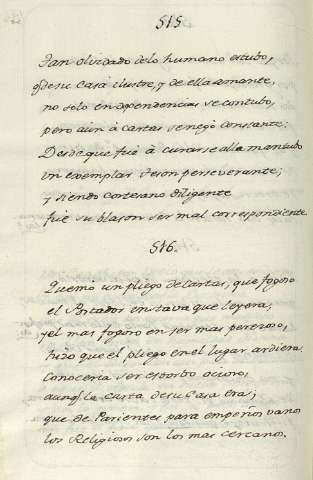 515
Tan olvidado delo humano estubo,
q̃ desu Casa ilustre, y de ella amante,
no solo en dependencias se contubo,
pero aùn à cartas se negò constante:
Desde que fuè à curarse alla mantubo
un exemplar deson perseverante;
y siendo cortesano diligente
fue su blason ser mal correspondiente
516.
Quemò un pliego de Cartas, que fogoso
el Portador instava que leyera;
y el mas fogoso en ser mas perezoso,
hizo que el pliego en el lugar ardiera.
Conoceria ser estorbo ocioso,
aunq̃ la carta desu Casa era;
que de Parientes para empeños vanos
los Religiosos son los mas cercanos.